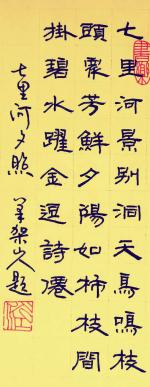 七里河景别洞天鳥鳴枝
頭眾芳鮮夕陽如柿枝間
掛碧水躍金逗詩僊
七里河夕照
人題